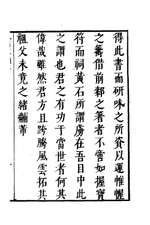 得此書而研味之所資以運帷幄
之籌借前鄴之箸者不啻如握寶
符而祠黄石所謂虜在吾目中此
之謂也君之有功于當世者何其
偉哉雖然君方且跨騰風雲拓其
祖父未竟之緒黼黻